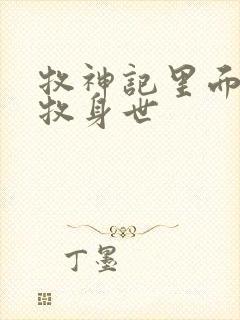 牧神記里而
牧身世
丁墨